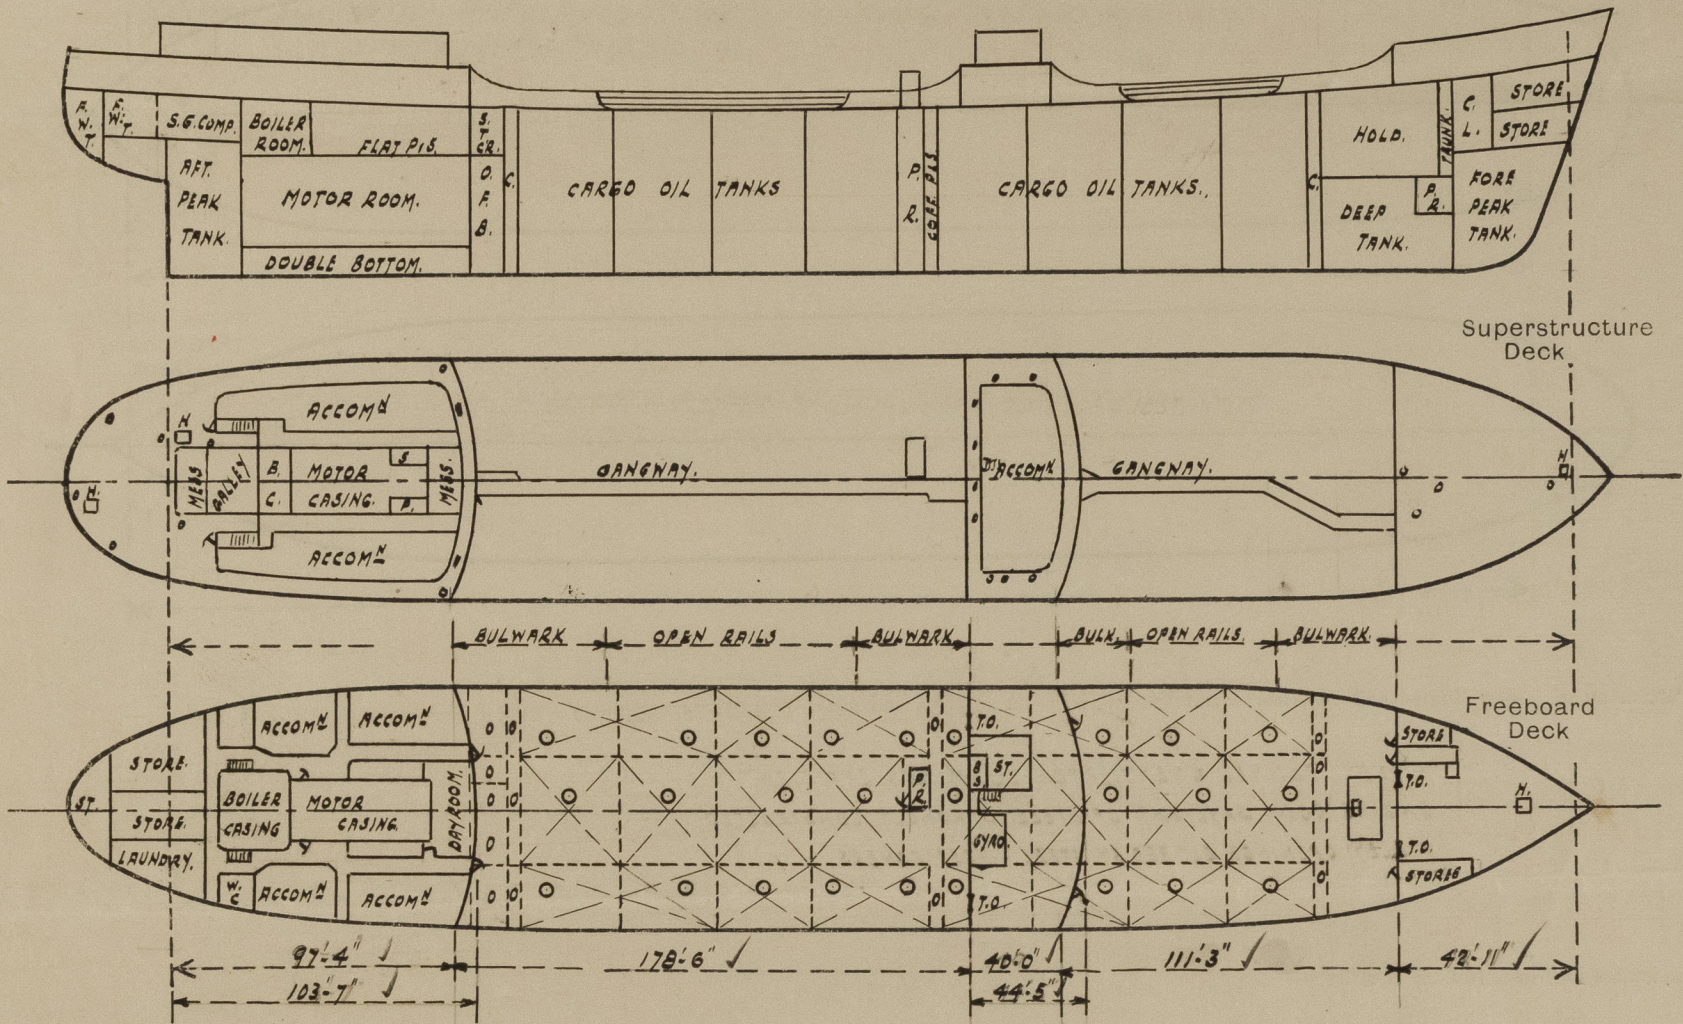 F.
W.
T.
F.
W.
T.
S.G.COMP.
BOILER
ROOM.
FLAT P&S.
S.
T
CR.
O.
F.
B.
C.
AFT.
PEAK
TANK.
MOTOR ROOM.
DOUBLE BOTTOM.
CARGO OIL TANKS
P.
R.
COFF. P&S.
CARGO OIL TANKS.
C.
HOLD.
TRUNK.
C.
L.
STORE
STORE
DEEP
TANK.
P.
R.
FORE
PEAK
TANK.
Superstructure
Deck
ACCOMN
H
H.
MESS
GALLEY
B.
C.
MOTOR
CASING.
S
P.
MESS.
ACCOMN
GANGWAY.
ACCOMN
GANGWAY.
H
BULWARK
OPEN RAILS
BULWARK
BULK.
OPEN RAILS.
BULWARK.
Freeboard
Deck
ST.
STORE.
STORE.
LAUNDRY.
ACCOMN
ACCOMN
BOILER
CASING
MOTOR
CASING.
DAYROOM.
W.
C
ACCOMN
ACCOMN
P.
R.
T.O.
B
S
ST.
GYRO.
T.O.
STORE
T.O.
T.O.
STORES
H.
97'-4"
178'-6"
40'-0"
111'-3"
42'-11"
103'-7"
44'-5"